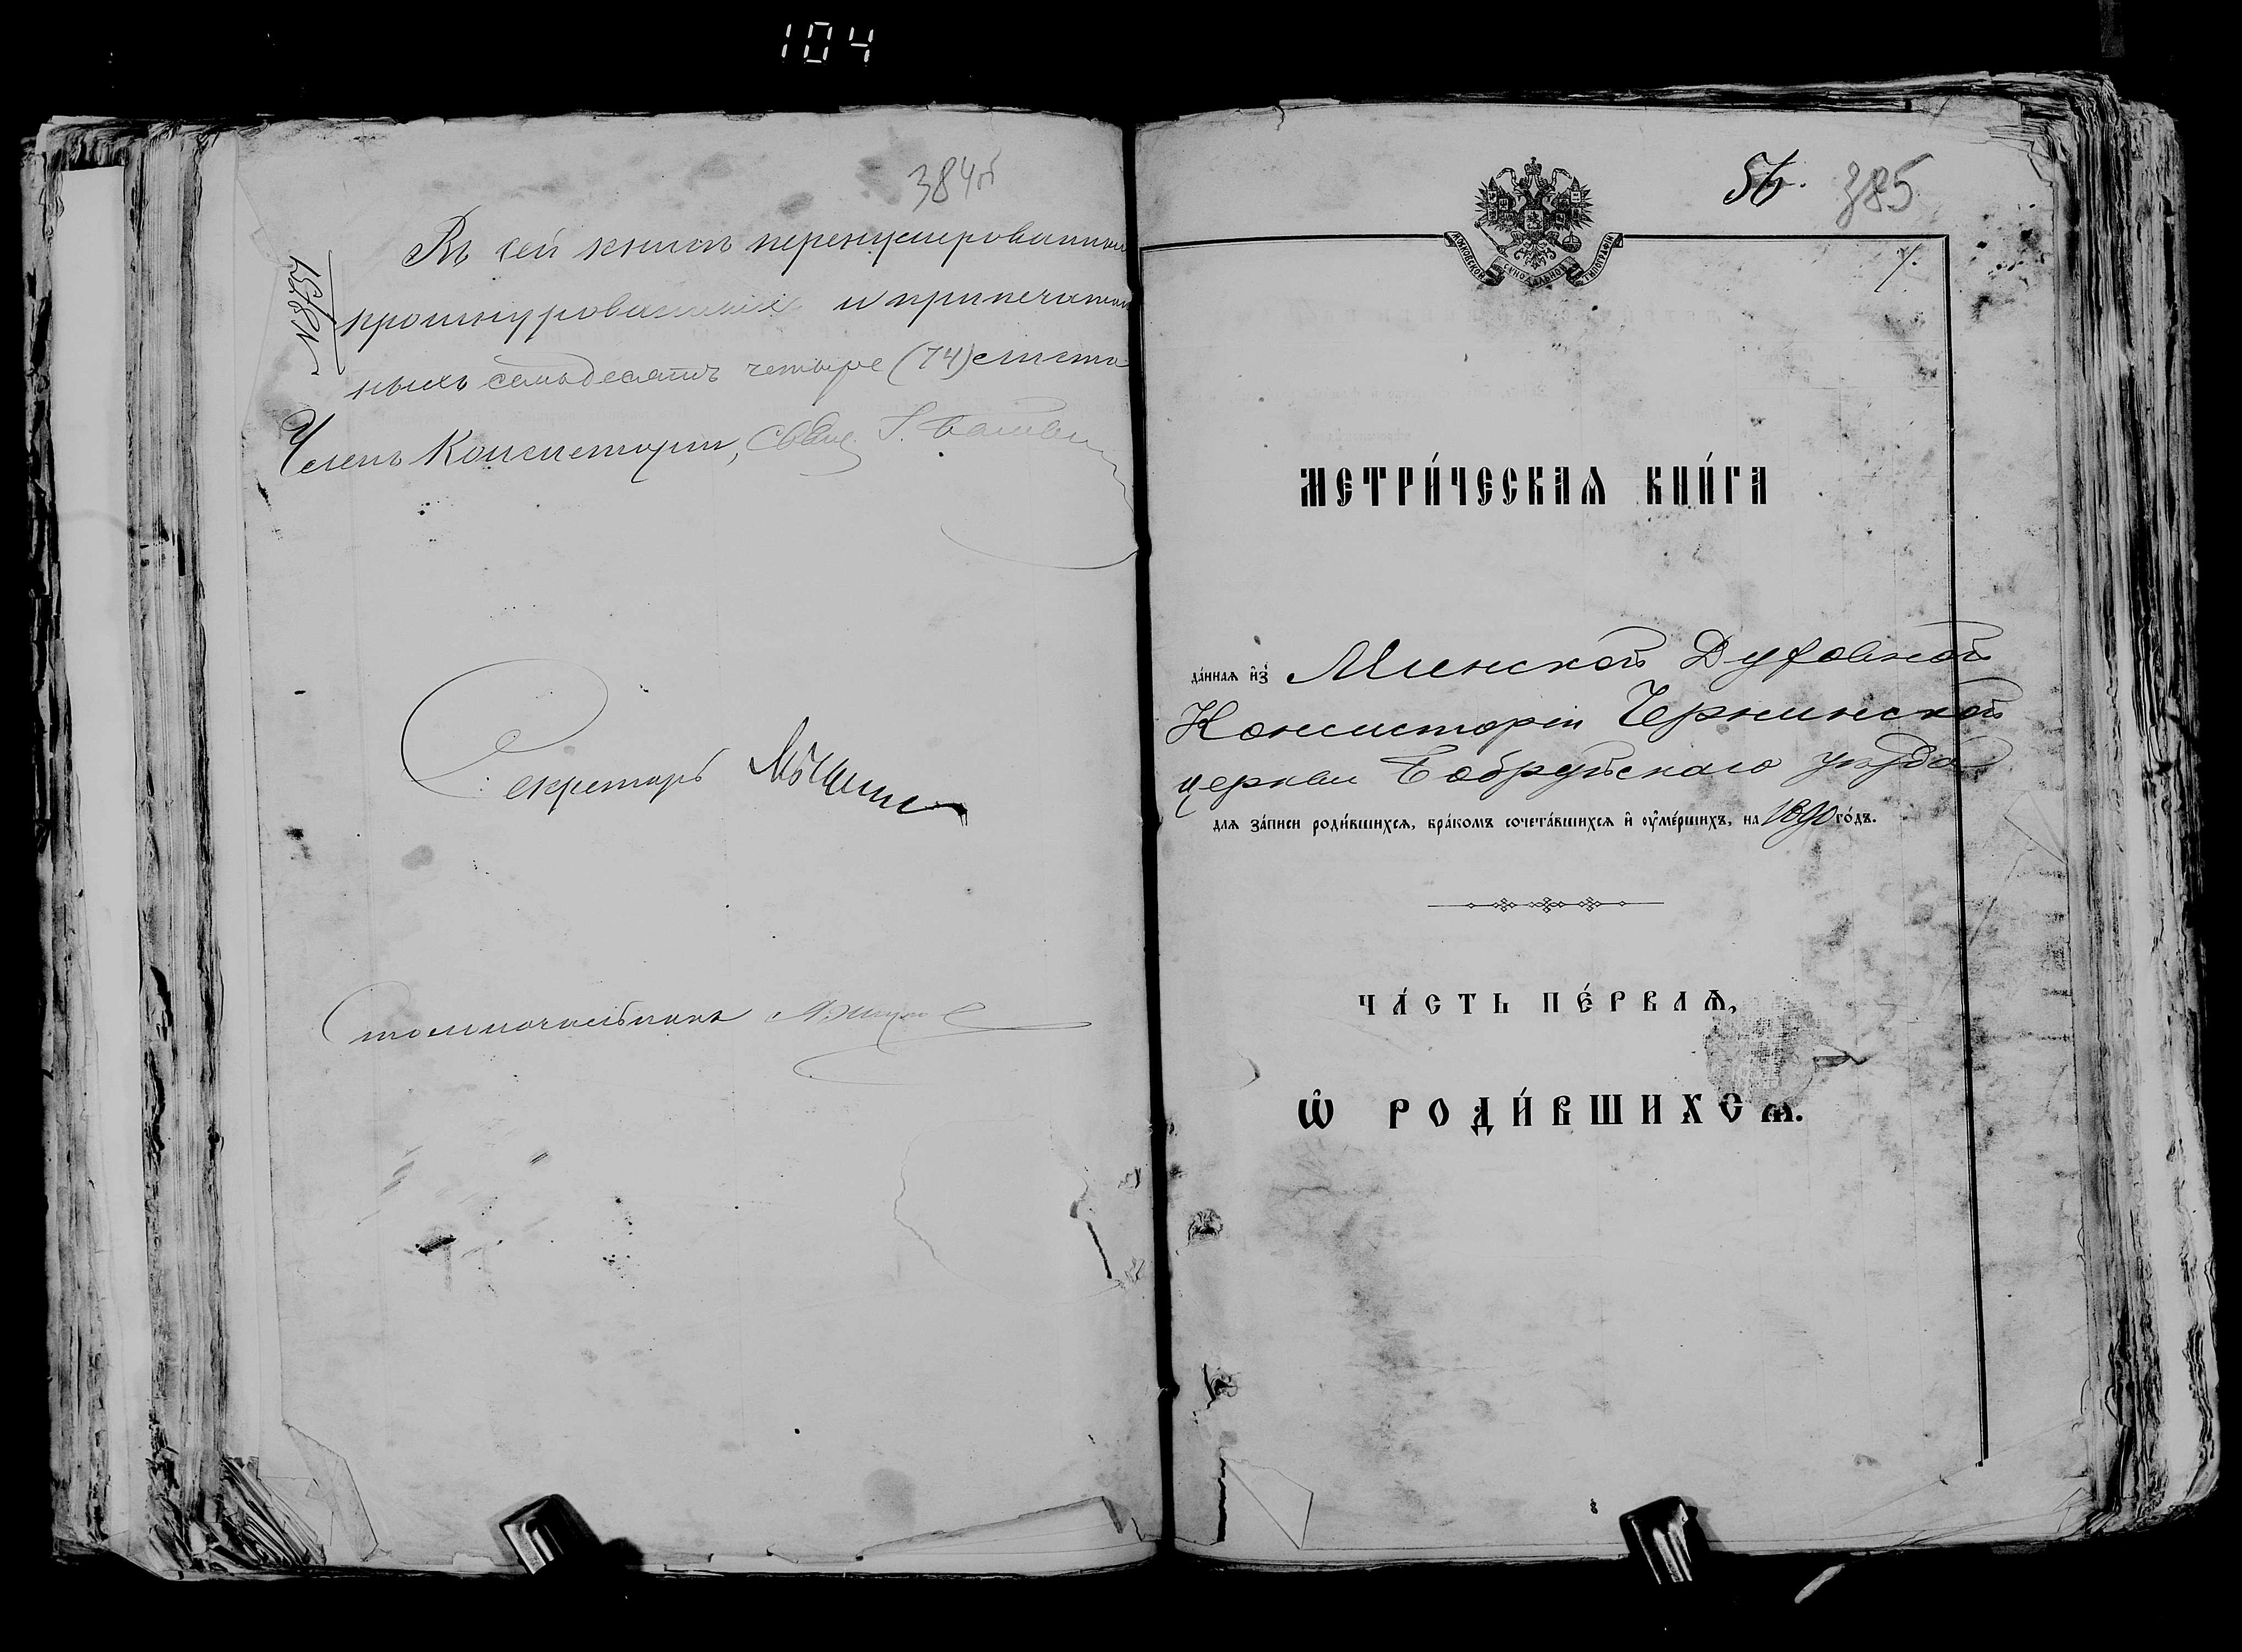 104
384об
№ 8751
Въ сей книгѣ перенумерованныхъ
прошнурованныхъ и припечатан
ныхъ семьдесятъ четыре (74) листа
Членъ Консисторіи, Свящ.
Секретарь
Столоначальникъ
385
МОСКОВСКОЙ СѴНОДАЛЬНОЙ ТИПОГРАФІИ
1.
МЕТРИ́ЧЕСКАѦ КНИ́ГА
да́ннаѧ и҆з̾ Минской Духовной
Консисторіи Чернинской
церкви Бобруйскаго уѣзда
длѧ за́писи роди́вшихсѧ, бра́комъ сочета́вшихсѧ и҆ ᲂу҆ме́ршихъ, на 1890 го́дъ.
ЧА́СТЬ ПЕ́РВАѦ,
Ѡ҆ РОДИ́ВШИХСѦ.